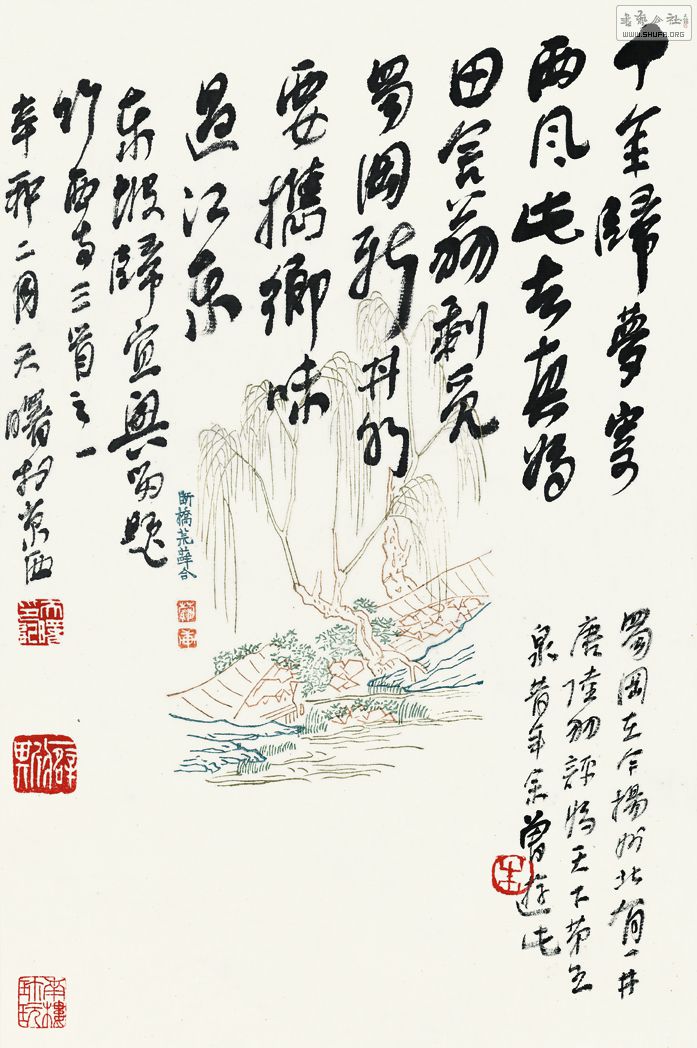 十年歸夢寄
西风此去真為
田舍翁剩覓
蜀岡新井水
要攜鄉味
過江東
東坡歸宜興留題
竹西寺三首之一
辛卯二月天曙於京西
断橋荒蘚合
蜀岡在今揚州北有一井
唐陸羽評為天下第五
泉昔年余曾遊此
朱
WWW.SHUFA.ORG